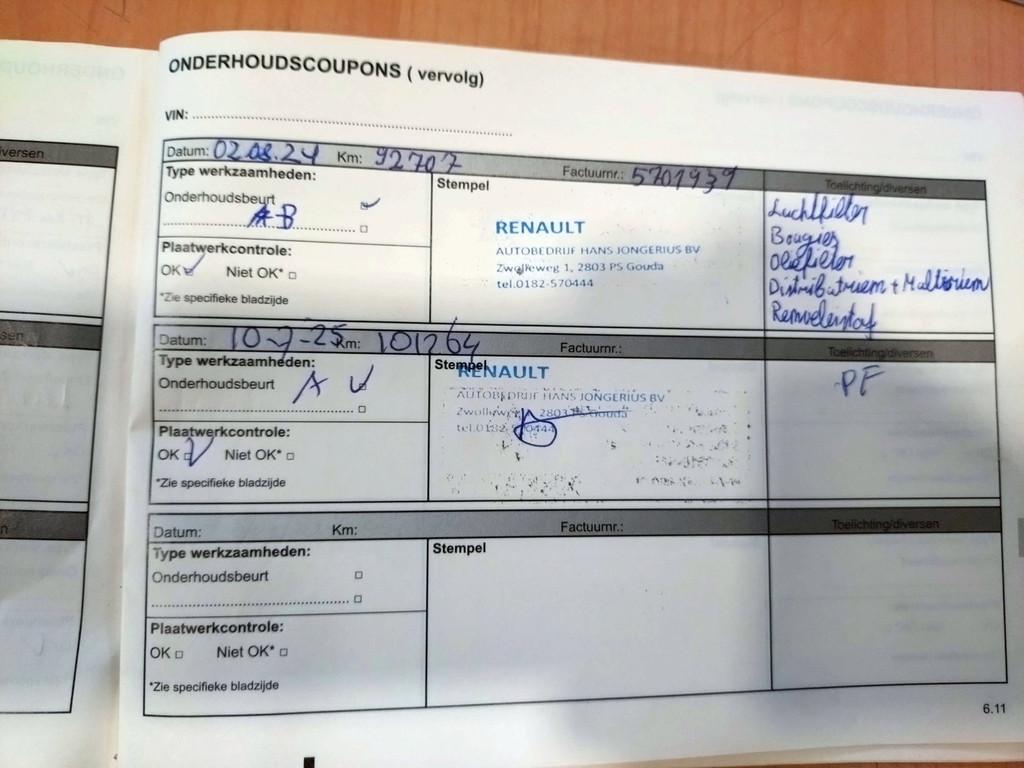 ONDERHOUDSCOUPONS ( vervolg)
VIN:
Datum: 02.08.24 Km: 92707 Factuurnr.: 5701939 Toelichting/diversen
Type werkzaamheden:
Onderhoudsbeurt
AB
Plaatwerkcontrole:
OK Niet OK*
*Zie specifieke bladzijde
Stempel
RENAULT
AUTOBEDRIJF HANS JONGERIUS BV
Zwolleweg 1, 2803 PS Gouda
tel.0182-570444
Luchtfilter
Bougies
Oliefilter
Distributieriem + Multiriem
Remvloeistof
Datum: 10-7-25 Km: 101264 Factuurnr.: Toelichting/diversen
Type werkzaamheden:
Onderhoudsbeurt A
Plaatwerkcontrole:
OK Niet OK*
*Zie specifieke bladzijde
Stempel
RENAULT
AUTOBEDRIJF HANS JONGERIUS BV
Zwolleweg 2803 PS Gouda
tel.0182-570444
PF
Datum: Km: Factuurnr.: Toelichting/diversen
Type werkzaamheden:
Onderhoudsbeurt
Plaatwerkcontrole:
OK Niet OK*
*Zie specifieke bladzijde
Stempel
6.11